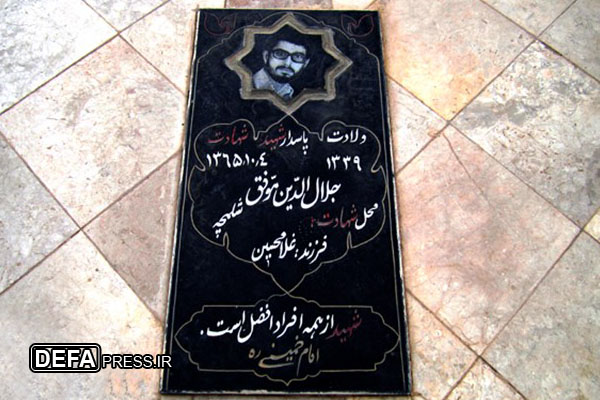 ولادت پاسدار شهید شهادت
۱۳۳۹ ۱۳۶۵/۱۰/۴
جلال الدین موفق
محل شهادت: شلمچه
فرزند: غلامحسین
شهید از همه افراد افضل است.
امام خمینی ره
DEFAPRESS.IR